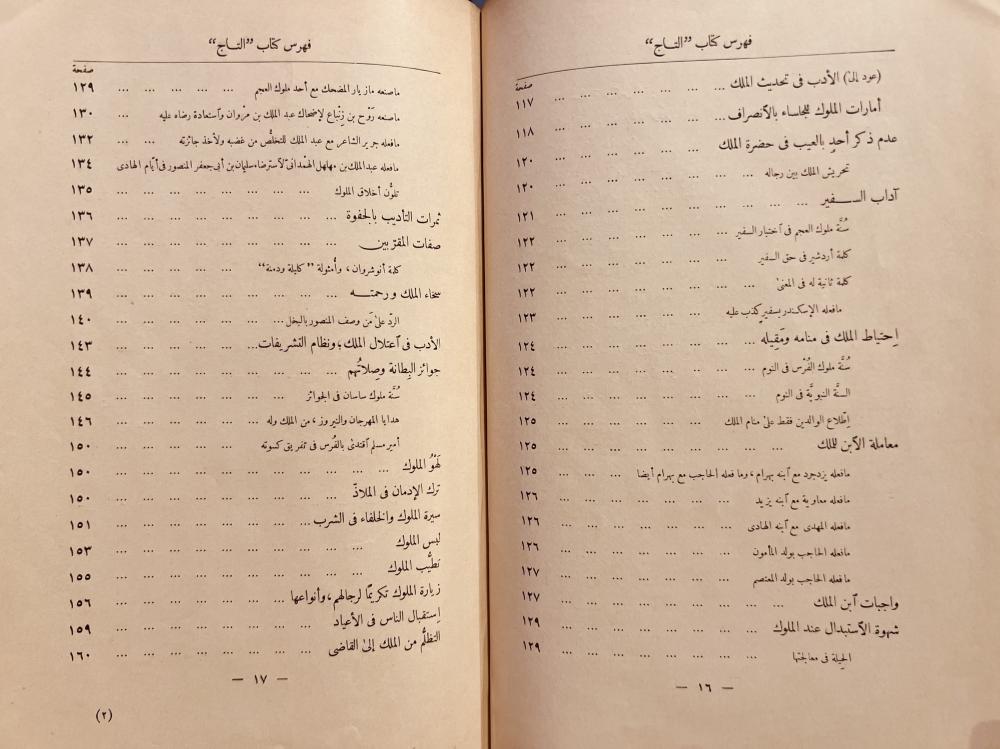 فهرس كتاب ”التاج“
صفحة
(عود إلى) الأدب فى تحديث الملك ... ... ... ... ... ... ... ١١٧
أمارات الملوك للجلساء بالآنصراف ... ... ... ... ... ... ١١٨
عدم ذكر أحدٍ بالعيب فى حضرة الملك ... ... ... ... ... ١٢٠
تحريش الملك بين رجاله ... ... ... ... ... ... ... ... ١٢٠
آداب الســفير ... ... ... ... ... ... ... ... ... ... ١٢١
سُنَّة ملوك العجم فى آختبار السفير ... ... ... ... ... ... ... ١٢٢
كلمة أردشير فى حق السفير ... ... ... ... ... ... ... ١٢٢
كلمة ثانية له فى المعنىٰ ... ... ... ... ... ... ... ... ١٢٢
مافعله الإسكندر بسفير كذب عليه ... ... ... ... ... ... ١٢٣
إحتياط الملك فى منامه ومَقِيله ... ... ... ... ... ... ... ... ١٢٤
سُنَّة ملوك الفُرْس فى النوم ... ... ... ... ... ... ... ١٢٤
السنَّة النبويَّة فى النوم ... ... ... ... ... ... ... ١٢٤
إطّلاع الوالدين فقط علىٰ منام الملك ... ... ... ... ... ... ١٢٥
معاملة الآبن للملك ... ... ... ... ... ... ... ... ... ١٢٥
مافعله يزدجرد مع آبنه بهرام ، وما فعله الحاجب مع بهرام أيضا ... ... ... ١٢٥
مافعله معاوية مع آبنه يزيد ... ... ... ... ... ... ... ١٢٦
مافعله المهدى مع آبنه الهادى ... ... ... ... ... ... ... ١٢٦
مافعله الحاجب بولد المأمون ... ... ... ... ... ... ... ١٢٦
مافعله الحاجب بولد المعتصم ... ... ... ... ... ... ... ١٢٧
واجبات آبن الملك ... ... ... ... ... ... ... ... ... ١٢٧
شهوة الآستبدال عند الملوك ... ... ... ... ... ... ... ... ١٢٩
الحِيلة فى معالجتها ... ... ... ... ... ... ... ... ١٢٩
— ١٦ —
فهرس كتاب ”التاج“
صفحة
ماصنعه مازيار المضحك مع أحد ملوك العجم ... ... ... ... ... ١٢٩
ماصنعه رَوْح بن زِنْباع لإضحاك عبد الملك بن مَرْوان وآستعادة رضاه عليه ... ١٣٠
مافعله جرير الشاعر مع عبد الملك للتخلُّص من غضبه ولأخذ جائزته ... ... ١٣٢
مافعله عبدالملك بن مهلهل الهمْدانىّ لآسترضاء سليمان بن أبى جعفر المنصور فى أيّام الهادى ١٣٤
تلوُّن أخلاق الملوك ... ... ... ... ... ... ... ... ١٣٥
ثمرات التأديب بالجفوة ... ... ... ... ... ... ... ... ... ١٣٦
صفات المقرّبين ... ... ... ... ... ... ... ... ... ١٣٧
كلمة أنوشروان ، وأُمثولة ”كليلة ودمنة“ ... ... ... ... ... ... ١٣٨
سخاء الملك ورحمتــه ... ... ... ... ... ... ... ... ... ١٣٩
الردّ علىٰ مَن وصف المنصور بالبخل ... ... ... ... ... ... ... ١٤٠
الأدب فى آعتلال الملك ؛ ونظام التشريفات ... ... ... ... ... ... ١٤٣
جوائز البِطانة وصِلاتُهم ... ... ... ... ... ... ... ... ١٤٤
سُنَّة ملوك ساسان فى الجوائز ... ... ... ... ... ... ... ١٤٥
هدايا المهرجان والنيروز ، من الملك وله ... ... ... ... ... ١٤٦
أمير مسلم آقتدىٰ بالفُرس فى تفريق كسوته ... ... ... ... ... ١٥٠
لَهْوُ الملوك ... ... ... ... ... ... ... ... ... ... ١٥٠
ترك الإدمان فى الملاذّ ... ... ... ... ... ... ... ... ... ١٥٠
سيرة الملوك والخلفاء فى الشرب ... ... ... ... ... ... ... ... ١٥١
لبس الملوك ... ... ... ... ... ... ... ... ... ... ١٥٣
تطيُّب الملوك ... ... ... ... ... ... ... ... ... ... ١٥٥
زيارة الملوك تكريمًا لرجالهم ، وأنواعها ... ... ... ... ... ... ... ١٥٦
إستقبال الناس فى الأعياد ... ... ... ... ... ... ... ... ١٥٩
التظلُّم من الملك إلىٰ القاضى ... ... ... ... ... ... ... ... ١٦٠
— ١٧ —
(٢)